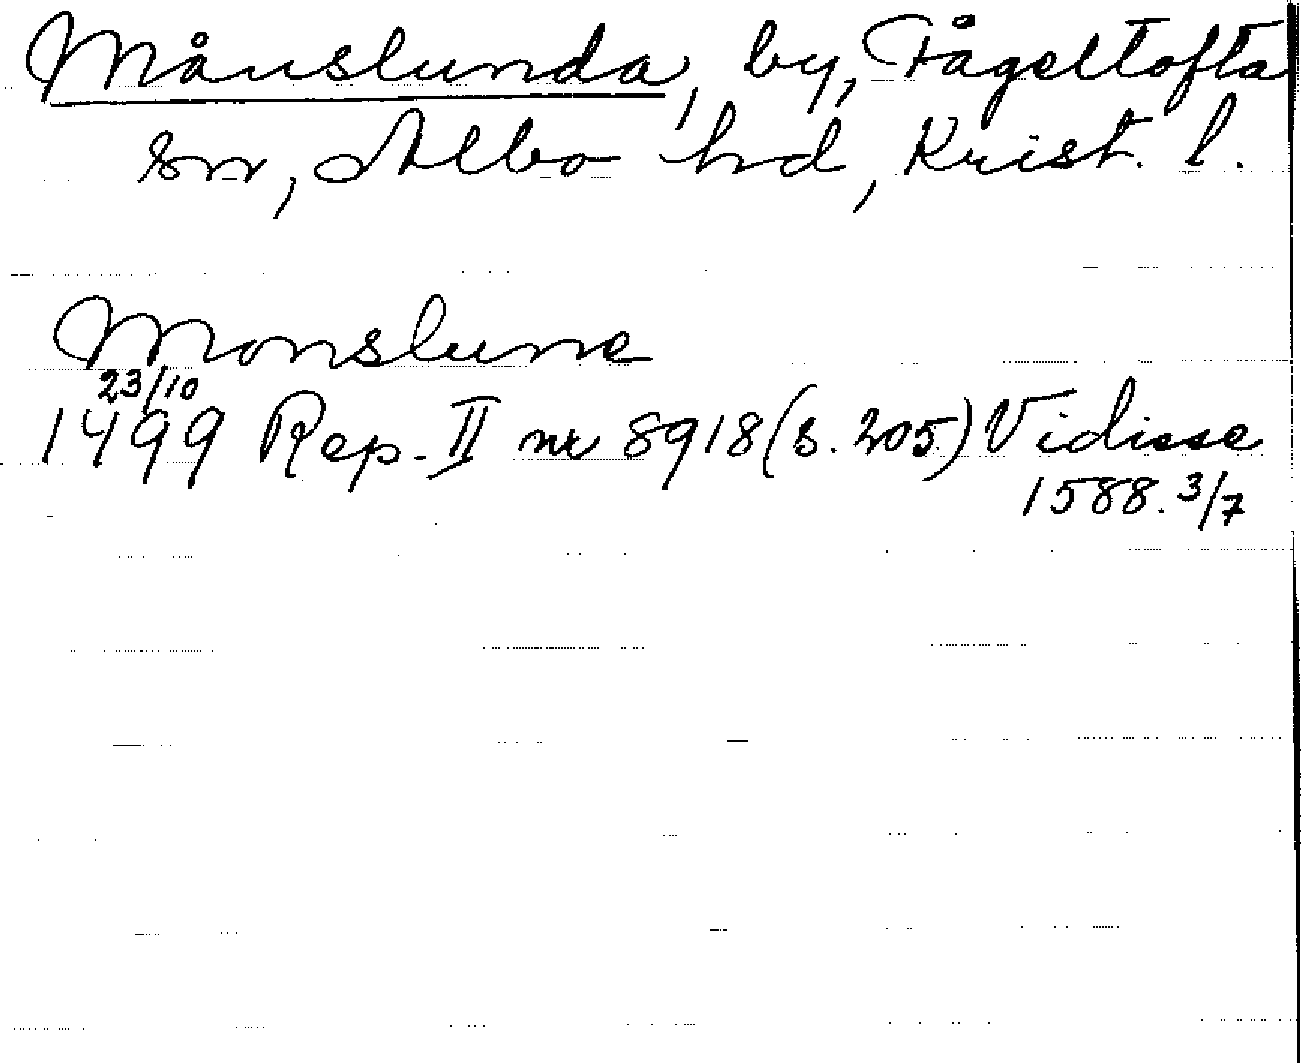 Månslunda, by, Fågeltofta
sn, Albo hd, Krist. l.
Monslune
23/10
1499 Rep. II nr 8918 (s. 205) Vidisse
1588. 3/7